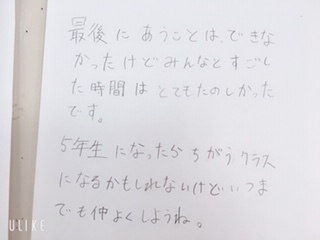 最後にあうことは、できな
かったけどみんなとすごし
た時間はとてもたのしかった
です。
5年生になったらちがうクラス
になるかもしれないけどいつま
でも仲よくしようね。
ULIKE